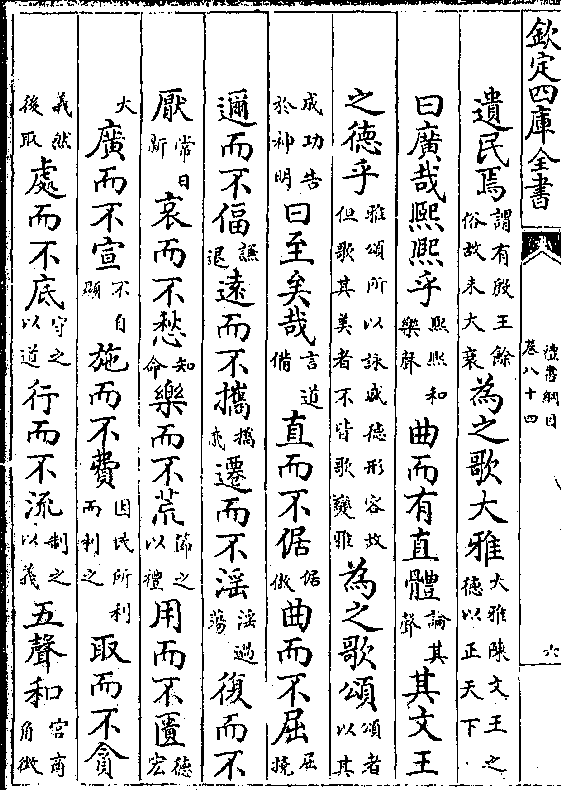 欽定四庫全書
禮書綱目
卷八十四
六
遺民焉謂有殷王餘俗故未大衰為之歌大雅大雅陳文王之德以正天下
曰廣哉熙熙乎熙熙和樂聲曲而有直體論其聲其文王
之德乎雅頌所以詠盛德形容故但歌其美者不皆歌變雅為之歌頌頌者以其
成功告於神明曰至矣哉言道備直而不倨倨傲曲而不屈屈撓
邇而不偪謙退遠而不攜攜貳遷而不滛滛過蕩復而不
厭常日新哀而不愁知命樂而不荒節之以禮用而不匱德宏
大廣而不宣不自顯施而不費因民所利而利之取而不貪
義然後取處而不底守之以道行而不流制之以義五聲和宮商角徵